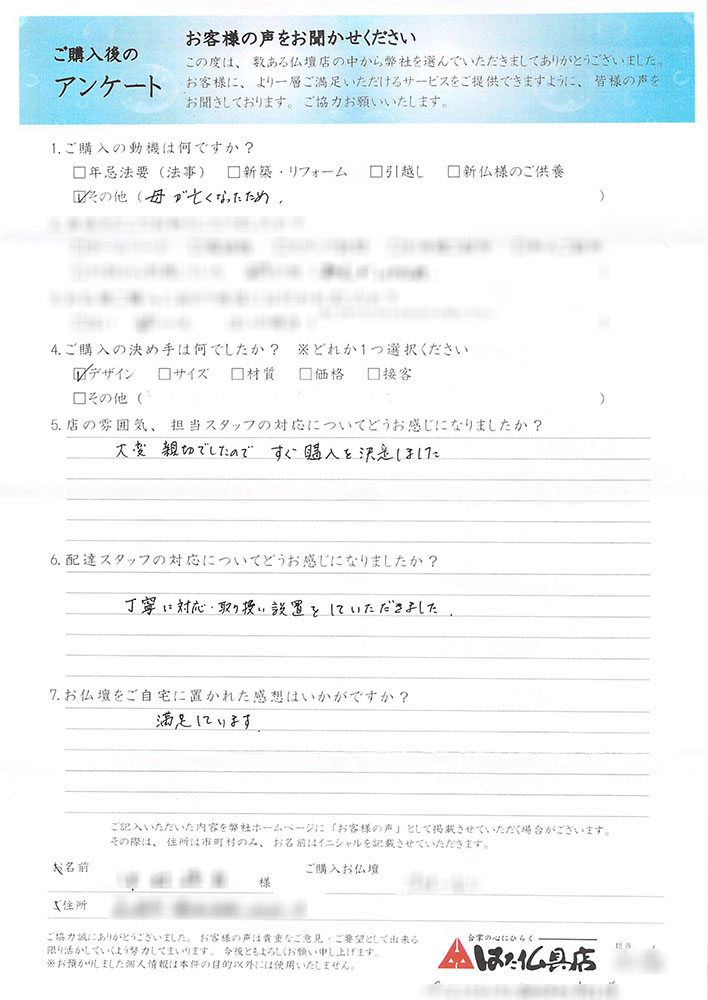 ご購入後の
アンケート
お客様の声をお聞かせください
この度は、数ある仏壇店の中から弊社を選んでいただきましてありがとうございました。
お客様に、より一層ご満足いただけるサービスをご提供できますように、皆様の声を
お聞きしております。ご協力お願いいたします。
1.ご購入の動機は何ですか？
□年忌法要（法事） □新築・リフォーム □引越し □新仏様のご供養
☑その他（母が亡くなったため. ）
4.ご購入の決め手は何でしたか？ ※どれか1つ選択ください
☑デザイン □サイズ □材質 □価格 □接客
□その他（ ）
5.店の雰囲気、担当スタッフの対応についてどうお感じになりましたか？
大変 親切でしたので すぐ購入を決意しました
6.配達スタッフの対応についてどうお感じになりましたか？
丁寧に対応・取り扱い設置をしていただきました.
7.お仏壇をご自宅に置かれた感想はいかがですか？
満足しています.
ご記入いただいた内容を弊社ホームページに「お客様の声」として掲載させていただく場合がございます。
その際は、住所は市町村のみ、お名前はイニシャルを記載させていただきます。
お名前 様 ご購入お仏壇
ご住所
ご協力誠にありがとうございました。お客様の声は貴重なご意見・ご要望として出来る
限り活かしていくよう努力してまいります。今後ともよろしくお願い申し上げます。
※お預かりしました個人情報は本件の目的以外には使用いたしません。
合掌の心にひらく
はた仏具店
担当